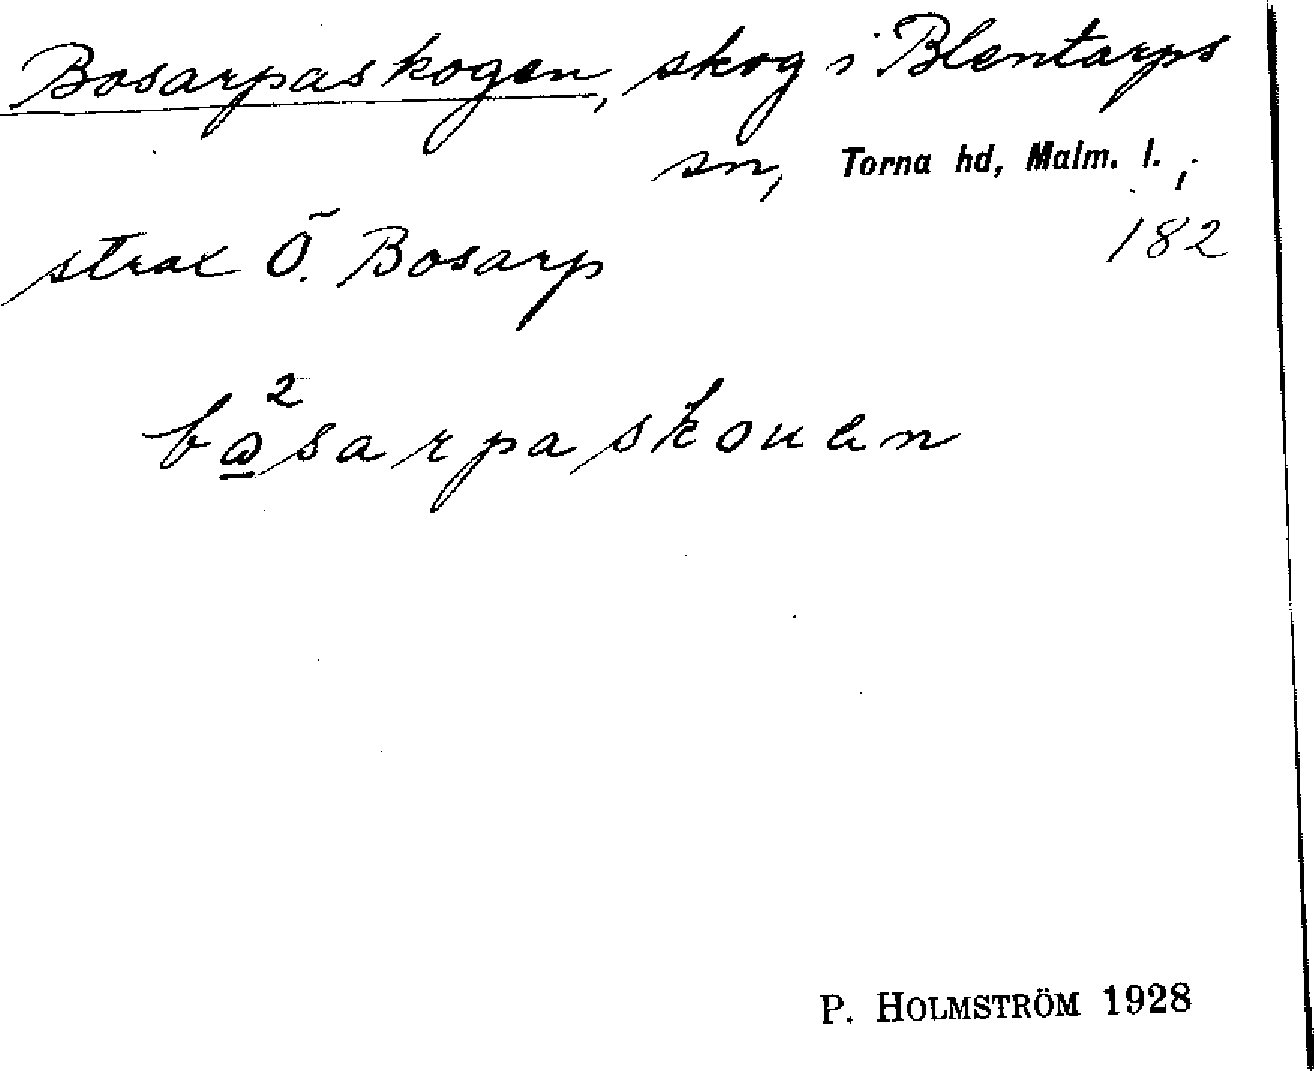 Bosarpaskogen, skog i Blentarps
sn, Torna hd, Malm. l.;
strax Ö. Bosarp 182
bo²sarpaskouen
P. HOLMSTRÖM 1928